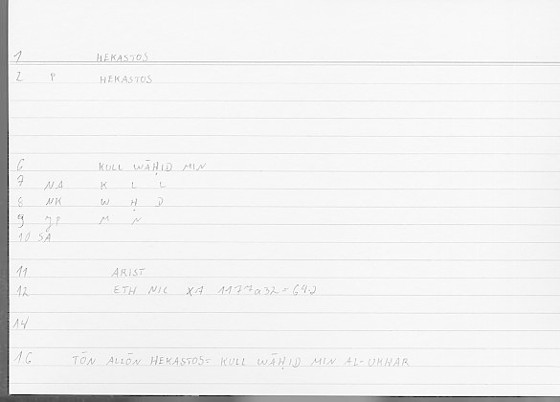 1 HEKASTOS
2 HEKASTOS
6 KULL WĀḤID MIN
7 NA K L L
8 NK W Ḥ D
9 M N
10 SA
11 ARIST
12 ETH NIC X7 1177a32=692
14
16 TŌN ALLŌN HEKASTOS= KULL WĀḤID MIN AL-UKHAR